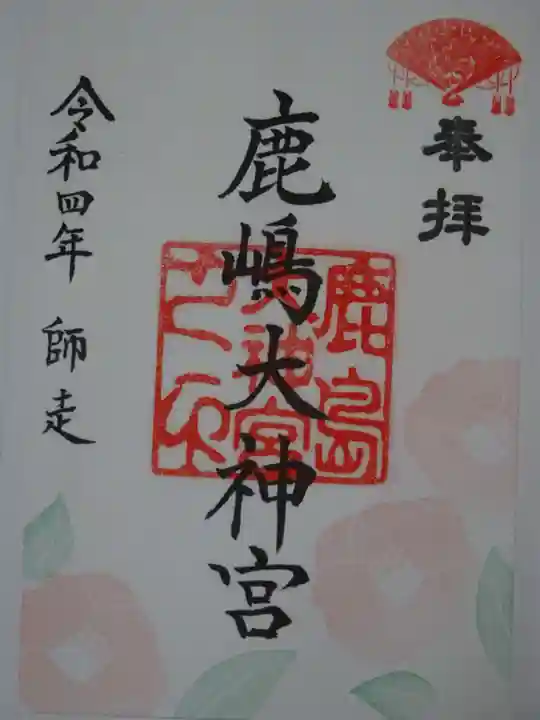 奉拝
鹿嶋大神宮
令和四年 師走
鹿島
大神宮